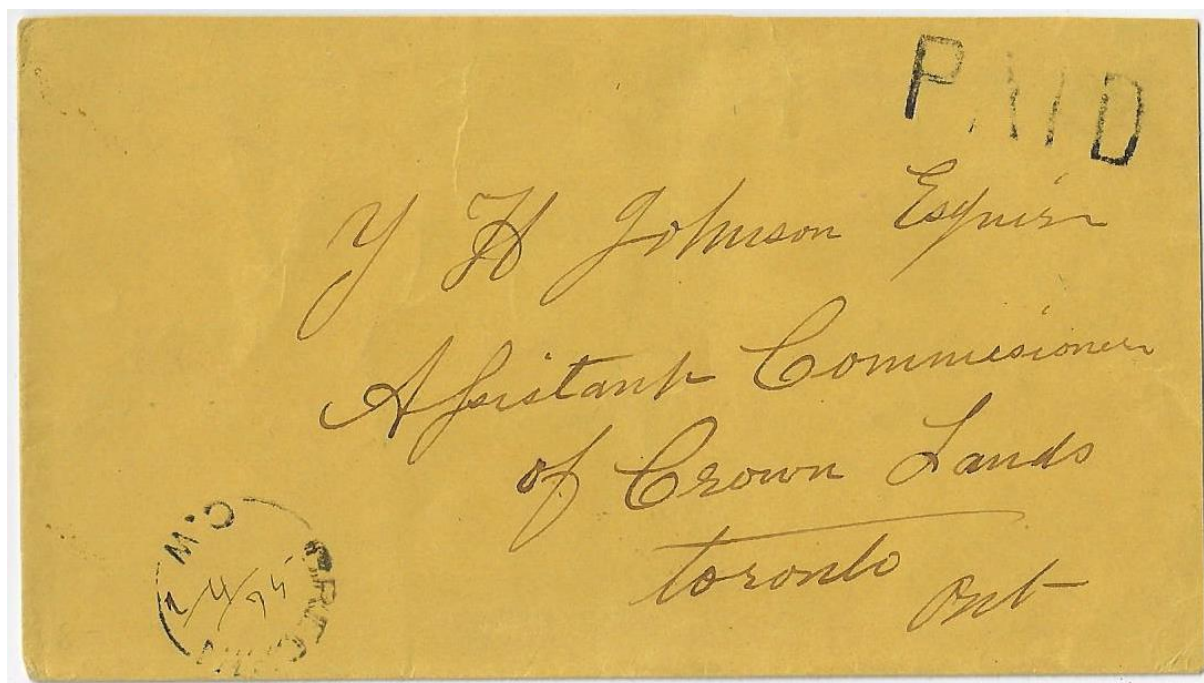 PAID
H Johnson Esquire
Assistant Commissioner
of Crown Lands
toronto
Ont
C.W